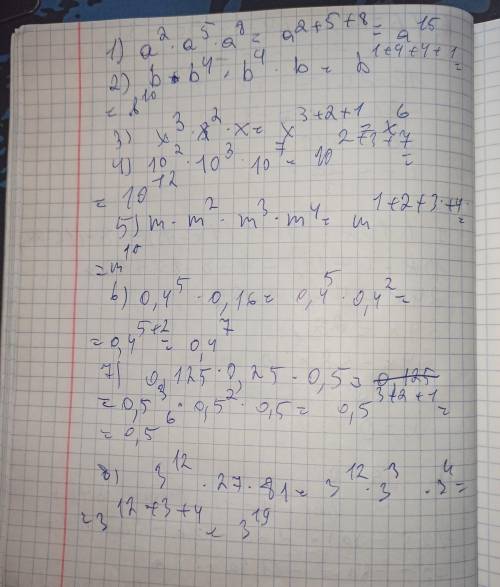 1) a² · a⁵ · a⁸ = a²⁺⁵⁺⁸ = a¹⁵
2) b · b⁴ · b⁴ · b = b¹⁺⁴⁺⁴⁺¹ =
= b¹⁰
3) x³ · x² · x = x³⁺²⁺¹ = x⁶
4) 10² · 10³ · 10⁷ = 10²⁺³⁺⁷ =
= 10¹²
5) m · m² · m³ · m⁴ = m¹⁺²⁺³⁺⁴ =
= m¹⁰
6) 0,4⁵ · 0,16 = 0,4⁵ · 0,4² =
= 0,4⁵⁺² = 0,4⁷
7) 0,125 · 0,25 · 0,5 = 0,125
= 0,5³ · 0,5² · 0,5 = 0,5³⁺²⁺¹ =
= 0,5⁶
8) 3¹² · 27 · 81 = 3¹² · 3³ · 3⁴ =
= 3¹²⁺³⁺⁴ = 3¹⁹